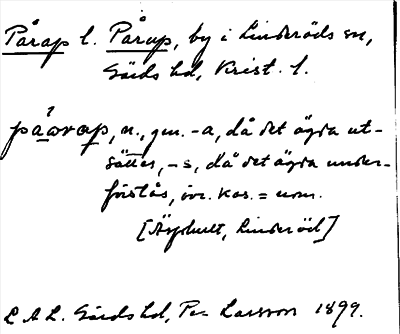 Pårap l. Pårup, by i Linderöds sn,
Gärds hd, Krist. l.
påarap, n., gen. -a, då det ägda ut-
sättes, -s, då det ägda under-
förstås, övr. kas. = nom.
[Äsphult, Linderöd]
L A L. Gärds hd, Per Larsson 1899.